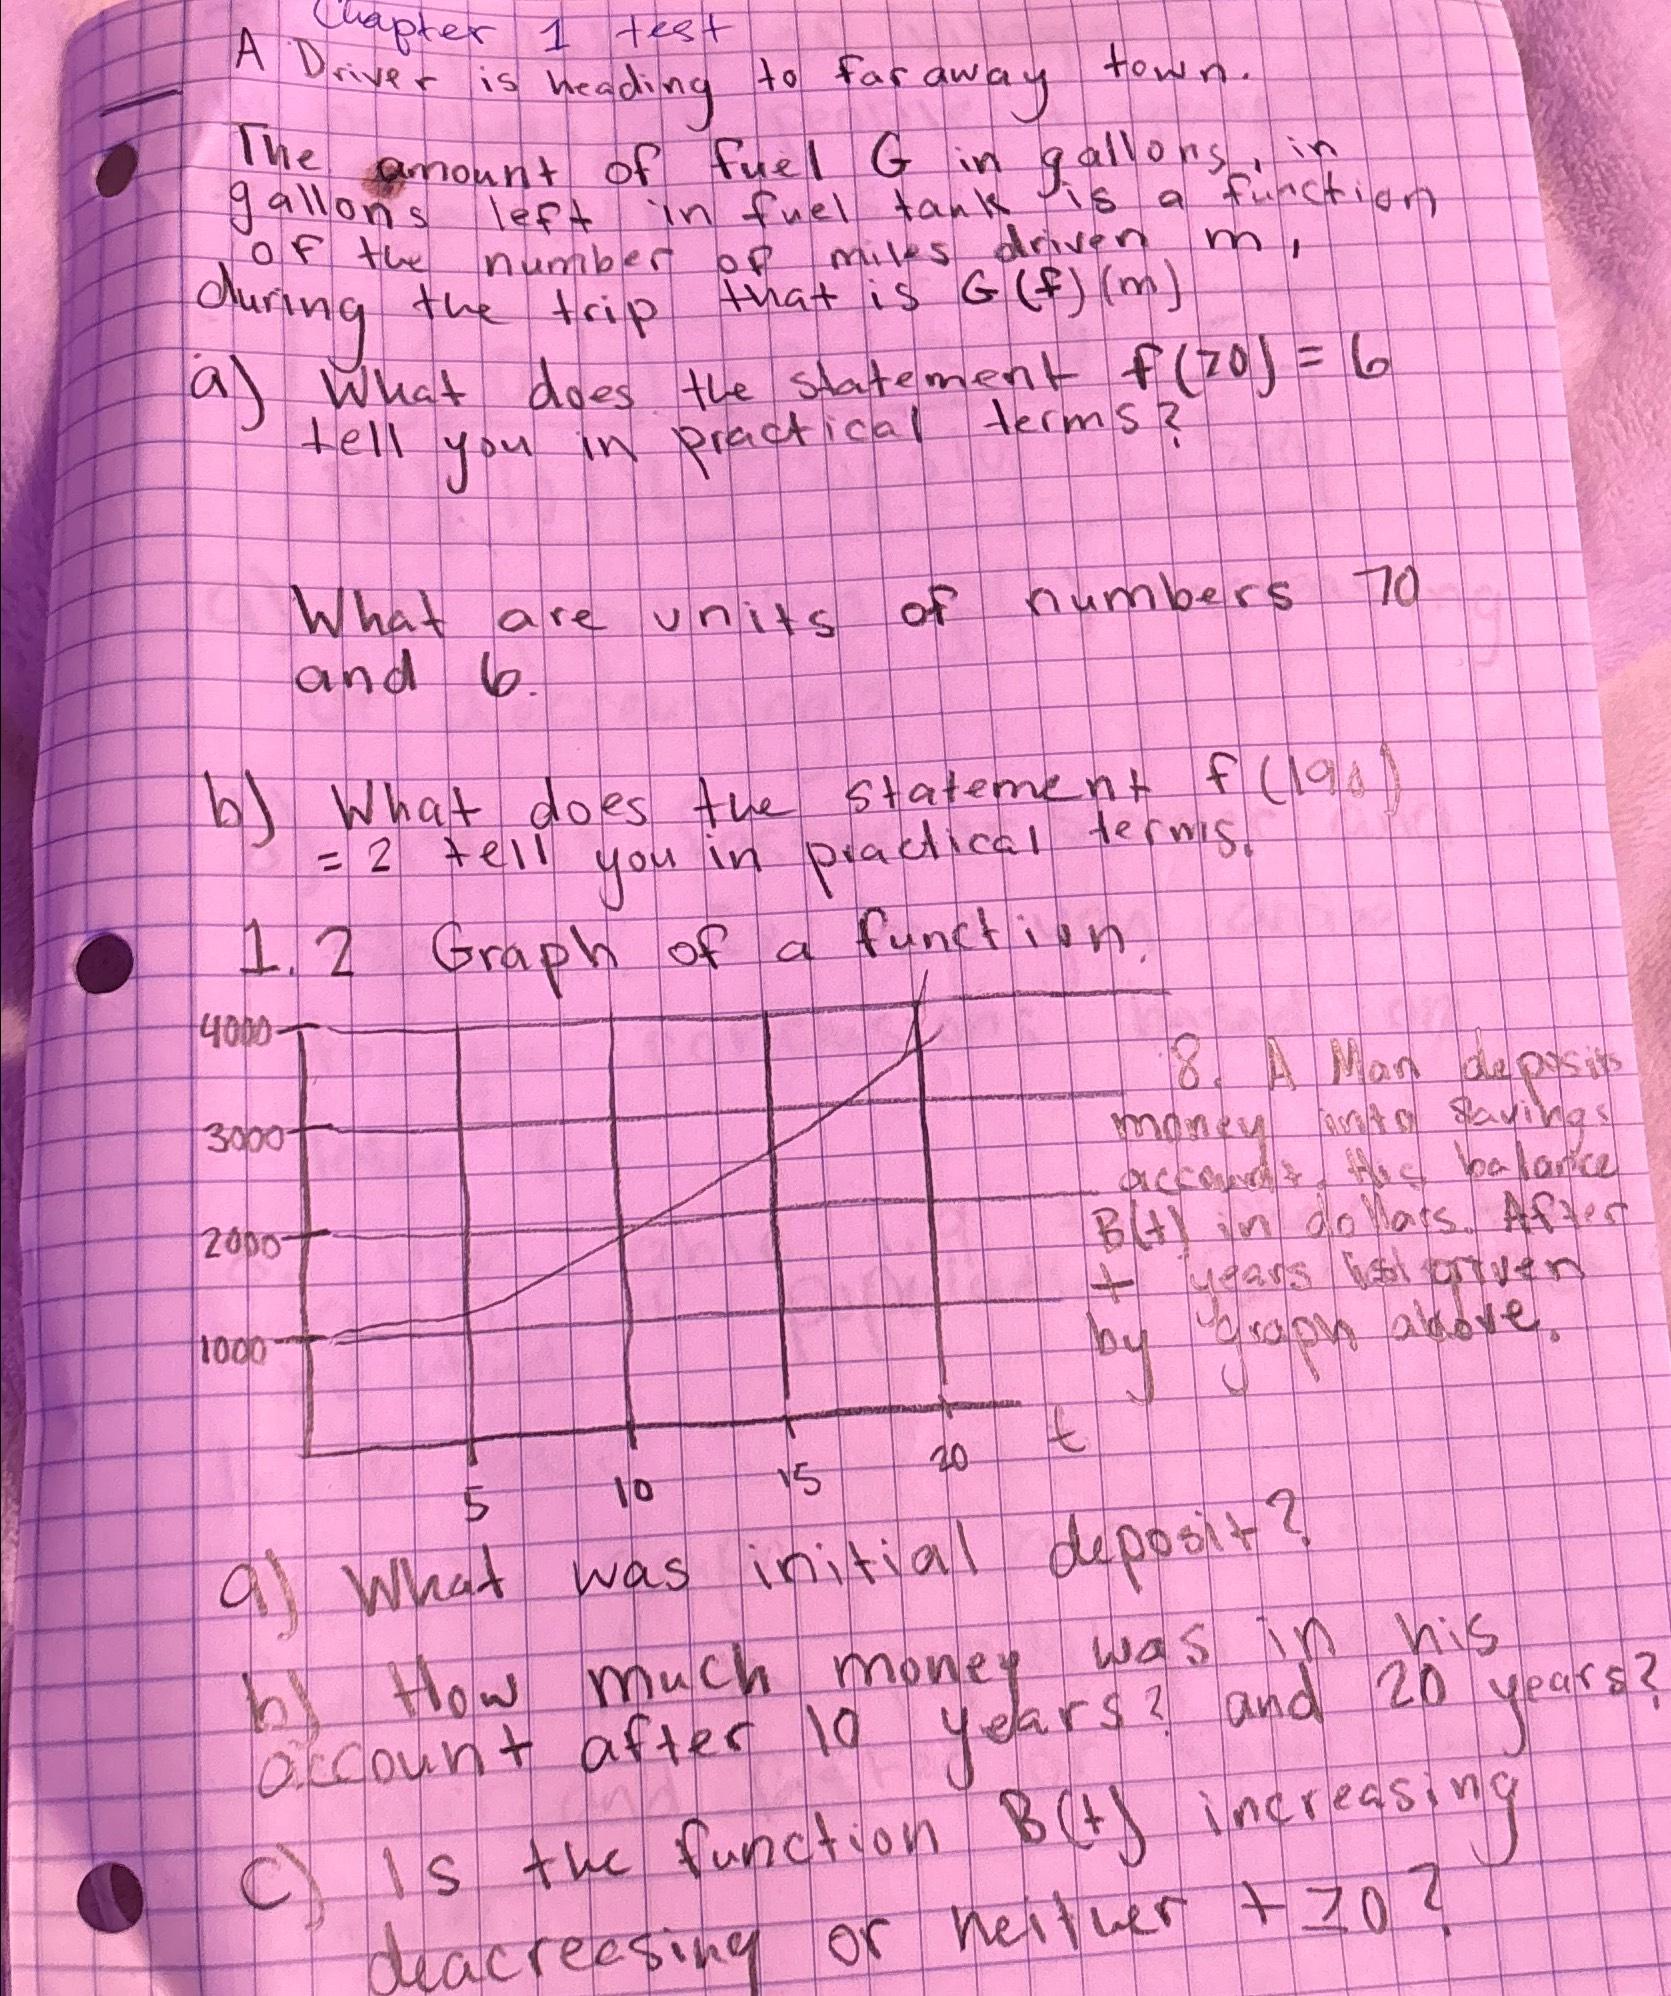 Chapter 1 test
A Driver is heading to far away town.
The amount of fuel G in gallons, in
gallons left in fuel tank is a function
of the number of miles driven m,
during the trip that is G(f)(m)
a) What does the statement f(70) = 6
tell you in practical terms?
What are units of numbers 70
and 6.
b) What does the statement f(190)
= 2 tell you in practical terms.
1.2 Graph of a function.
4000
3000
2000
1000
5
10
15
20
t
8. A Man deposits
money into savings
account. His balance
B(t) in dollars. After
t years is given
by graph above.
a) What was initial deposit?
b) How much money was in his
account after 10 years? and 20 years?
c) Is the function B(t) increasing
deacreesing or neither t ≥0?